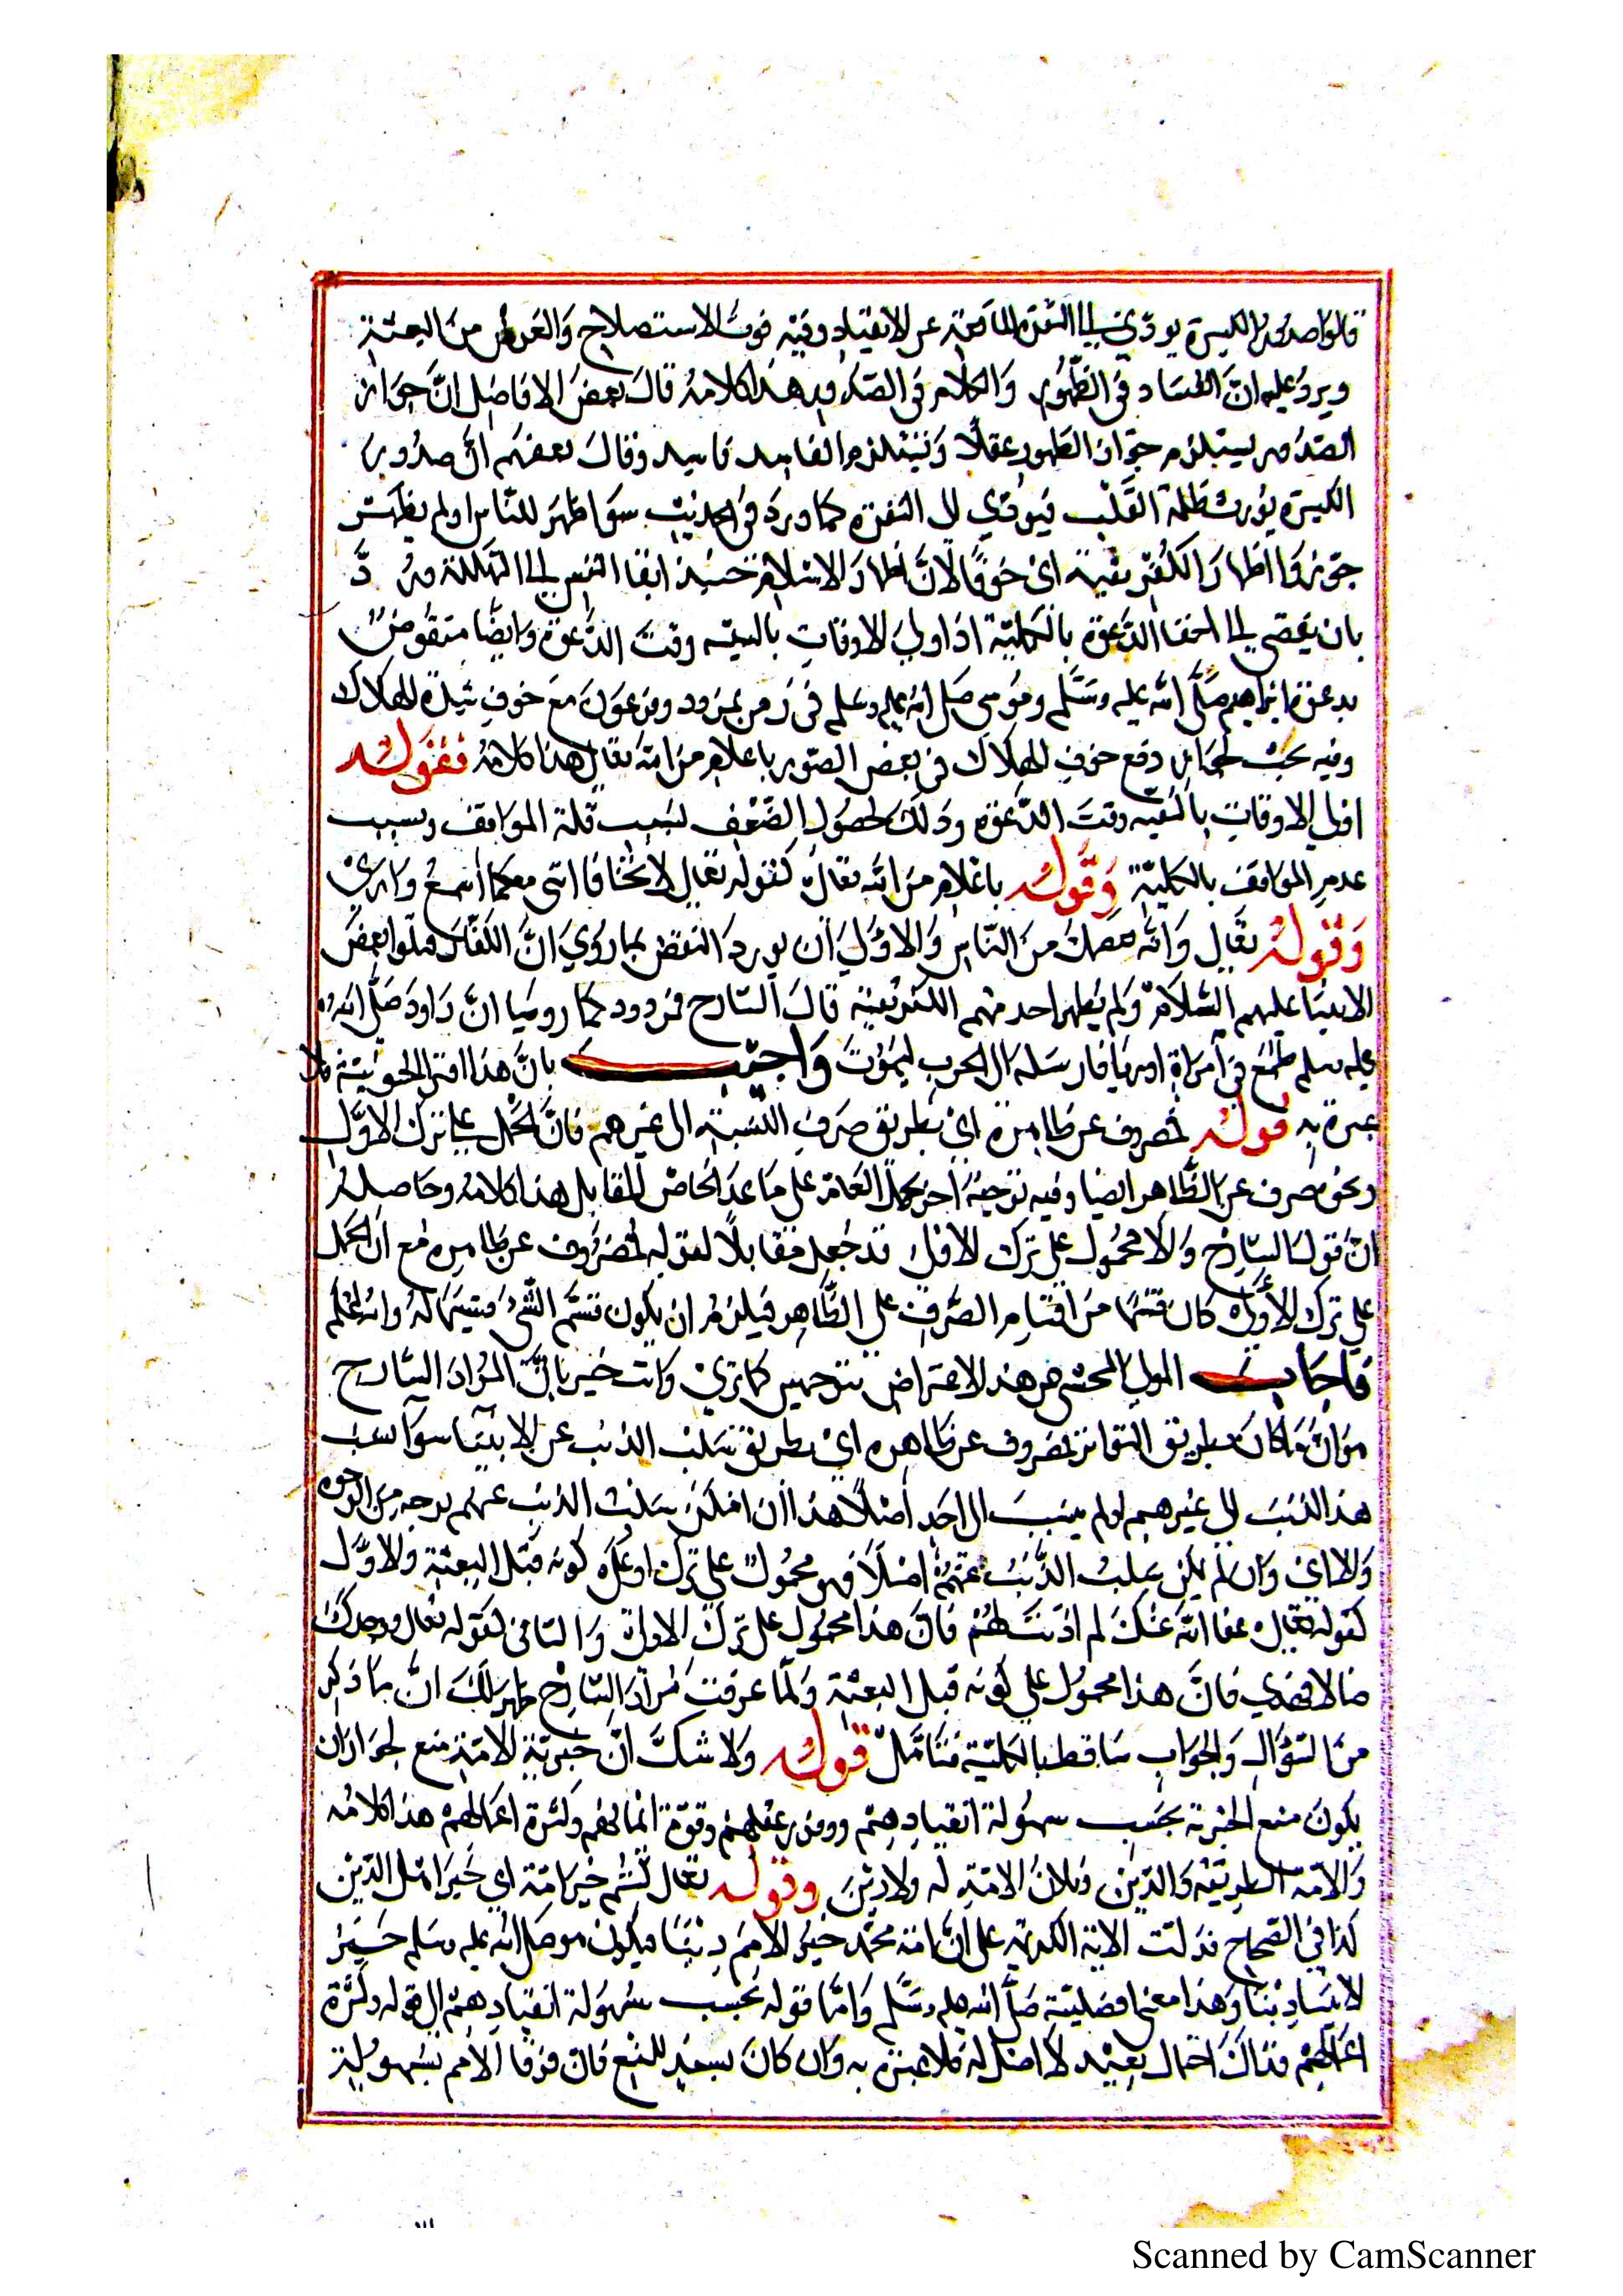 قالوا صدور الكبيرة يودي الى النفرة المانعة عن الانقياد وفيه فوت الاستصلاح والغرض من البعثة
ويرد عليه ان الفساد في الظهور والكلام في الصدور هذا كلامه قال بعض الافاضل ان جواز
الصدور يستلزم جواز الظهور عقلا ومستلزم الفاسد فاسد وقال بعضهم ان صدور
الكبيرة يورث ظلمة القلب فيودي الى النفرة كما ورد في الحديث سوا ظهر للناس اولم يظهر
جوزوا اظهار الكفر تقية اي خوفا لان اظهار الاسلام حينئذ القا النفس الى التهلكة ورد
بان يفضى الى اخفا الدعوة بالكلية اذ اولى الاوقات بالتقية وقت الدعوة وايضا منقوض
بدعوة ابراهيم صلى الله عليه وسلم وموسى صلى الله عليه وسلم في زمن نمرود وفرعون مع خوف شدة الهلاك
وفيه بحث لجواز دفع خوف الهلاك في بعض الصور باعلام من الله تعالى هذا كلامه فقوله
اولى الاوقات بالتقية وقت الدعوة وذلك لحصول الضعف بسبب قلة الموافق وبسبب
عدم الموافق بالكلية وقوله باعلام من الله تعالى كقوله تعالى لا تخافا انني معكما اسمع وارى
وقوله تعالى والله يعصمك من الناس والاولى ان يورد النقض بما روي ان الكفار قتلوا بعض
الانبيا عليهم السلام ولم يظهر احد منهم الكفر تقية قال الشارح فمردود كما روميا ان داود صلى الله
عليه وسلم طمع في امراة اوريا فارسله الى الحرب ليموت واجيب بان هذا افترا الحشوية فلا
عبرة به قوله فمصروف عن ظاهره اي بطريق صرف النسبة الى غيرهم فان الحمل على ترك الاولى
ونحوه صرف عن الظاهر ايضا وفيه توجيه اخر بحمل العام على ما عدا الخاص المقابل هذا كلامه وحاصله
ان قول الشارح والا محمول على ترك الاولى قد جعل مقابلا لقوله فمصروف عن ظاهره مع ان الحمل
على ترك الاولى كان قسما من اقسام الصرف على الظاهر فيلزم ان يكون قسم الشي قسيما له والله اعلم
فاجاب المولى المحشي عن هذا الاعتراض بتوجيهين كما ترى وانت خبير بان المراد الشارح
هو ان ما كان بطريق التواتر فمصروف عن ظاهره اي بطريق سلب الذنب عن الانبيا سوا نسب
هذا الذنب الى غيرهم اولم ينسب الى احد اصلا هذا ان امكن سلب الذنب عنهم بوجه من الوجوه
والا اي وان لم يكن سلب الذنب عنهم اصلا فهو محمول على ترك اوعلى كونه قبل البعثة والاول
كقوله تعالى عفا الله عنك لم اذنت لهم فان هذا محمول على ترك الاولى والثاني كقوله تعالى ووجدك
ضالا فهدي فان هذا محمول على كونه قبل البعثة ولما عرفت مراد الشارح ظهر لك ان ما ذكر
من السؤال والجواب ساقط بالكلية فتامل قوله ولا شك ان خيرية الامة منع لجواز ان
يكون منع الخيرية بحسب سهولة انقيادهم ووفور عقلهم وقوة ايمانهم وكثرة اعمالهم هذا كلامه
والامة الطريقة والدين وفلان لا امة له ولا دين وقوله تعالى كنتم خير امة اي خير اهل الدين
كذا في الصحاح فدلت الاية الكريمة على ان امة محمد خير الامم دينا فيكون هو صلى الله عليه وسلم خير
الانبيا دينا وهذا معنى افضليته صلى الله عليه وسلم واما قوله بحسب سهولة انقيادهم الى قوله وكثرة
اعمالهم فذاك احتمال بعيد لا اصل له فلا عبرة به وان كان بسند للمنع فان فرقا الامم بسهولة
Scanned by CamScanner